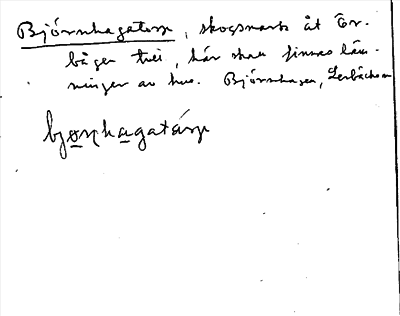 Björnhagatorp, skogsmark åt Er-
båger tvei, här skall finnas läm-
ningar av hus. Björnhagen, Lerbäcks sn
bjo̲n̲ha̲gatárp